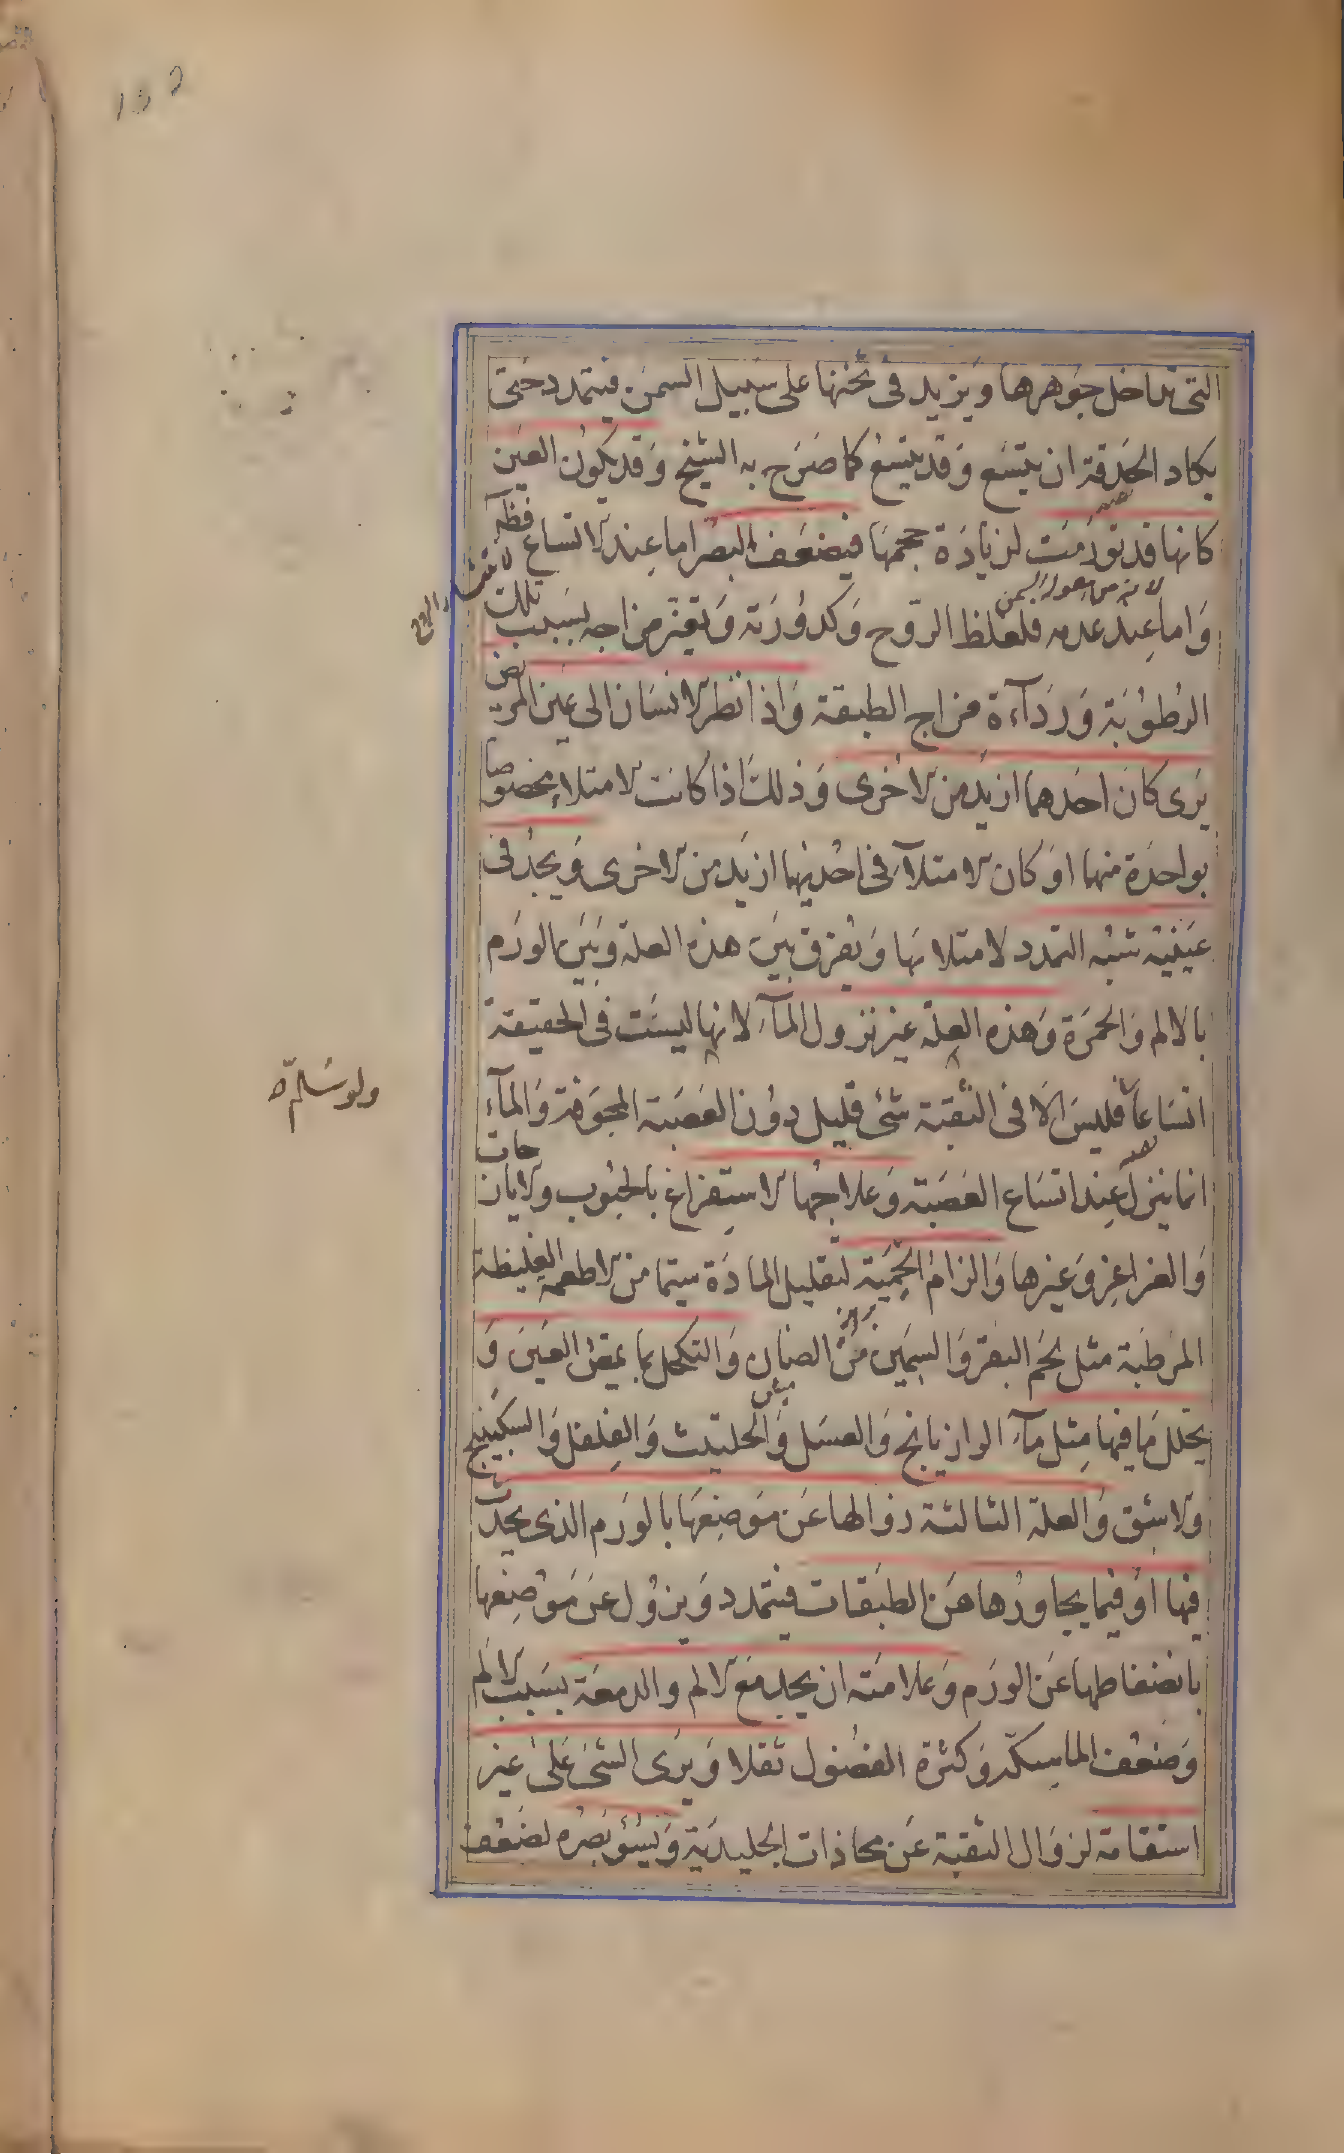 التى تداخل جوهرها ويزيد فى ثخنها على سبيل السمن فيتمدد حتى
يكاد الحدقة ان يتسع وقد يتسع كما صرح به الشيخ وقد يكون العين
كانها قد تورمت لزيادة حجمها فيضعف البصر اما عند الاتساع فظاهر
واما عند عدمه فلغلظ الروح وكدورته وتغير مزاجه بسبب تلك
الرطوبة ورداءة مزاج الطبقة واذا نظر الانسان الى عين المريض
يرى كان احدهما ازيد من الاخرى وذلك اذا كانت الامتلاء مخصوصا
بواحدة منها او كان الامتلاء فى احديهما ازيد من الاخرى ويجد فى
عينيه شبه التمدد لامتلائها ويفرق بين هذه العلة وبين الورم
بالالم والحمرة وهذه العلة غير نزول الماء لانها ليست فى الحقيقة
اتساعا فليس الا فى الثقبة شئ قليل دون العصبة المجوفة والماء
انما ينزل عند اتساع العصبة وعلاجها الاستفراغ بالحبوب والايارجات
والغراغر وغيرها والزام الحمية لتقليل المادة سيما من الاطعمة الغليظة
المرطبة مثل لحم البقر والسمين من الضان والتكحل بما يمغص العين و
يحلل ما فيها مثل ماء الرازيانج والعسل والحلتيت والفلفل والسكبينج
والاشق والعلة الثالثة زوالها عن موضعها بالورم الذى يحدث
فيها او فيما يجاورها من الطبقات فيتمدد ويزول عن موضعها
بانضغاطها عن الورم وعلامته ان يجد مع الالم والدمعة بسبب الالم
وضعف الماسكة وكثرة الفضول ثقلا ويرى الشئ على غير
استقامة لزوال الثقبة عن محاذات الجليدية ويسؤ بصره لضعف
ولو سلم